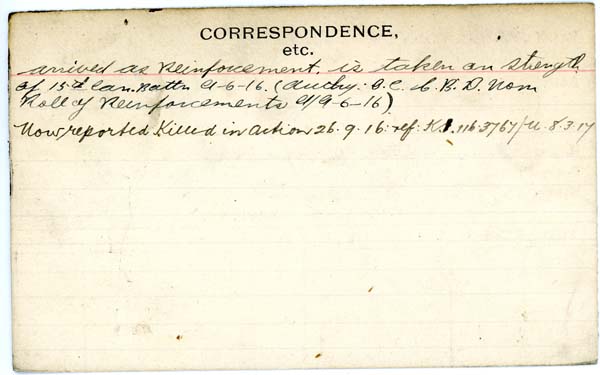 CORRESPONDENCE,
etc.
arrived as Reinforcement, is taken on strength
of 15th Can. Battn 9-6-16. (Authy: O.C. C.B.D. Nom
Roll of Reinforcements d/9-6-16)
Now reported Killed in action 26.9.16: ref: 116.3767/ 8.3.17